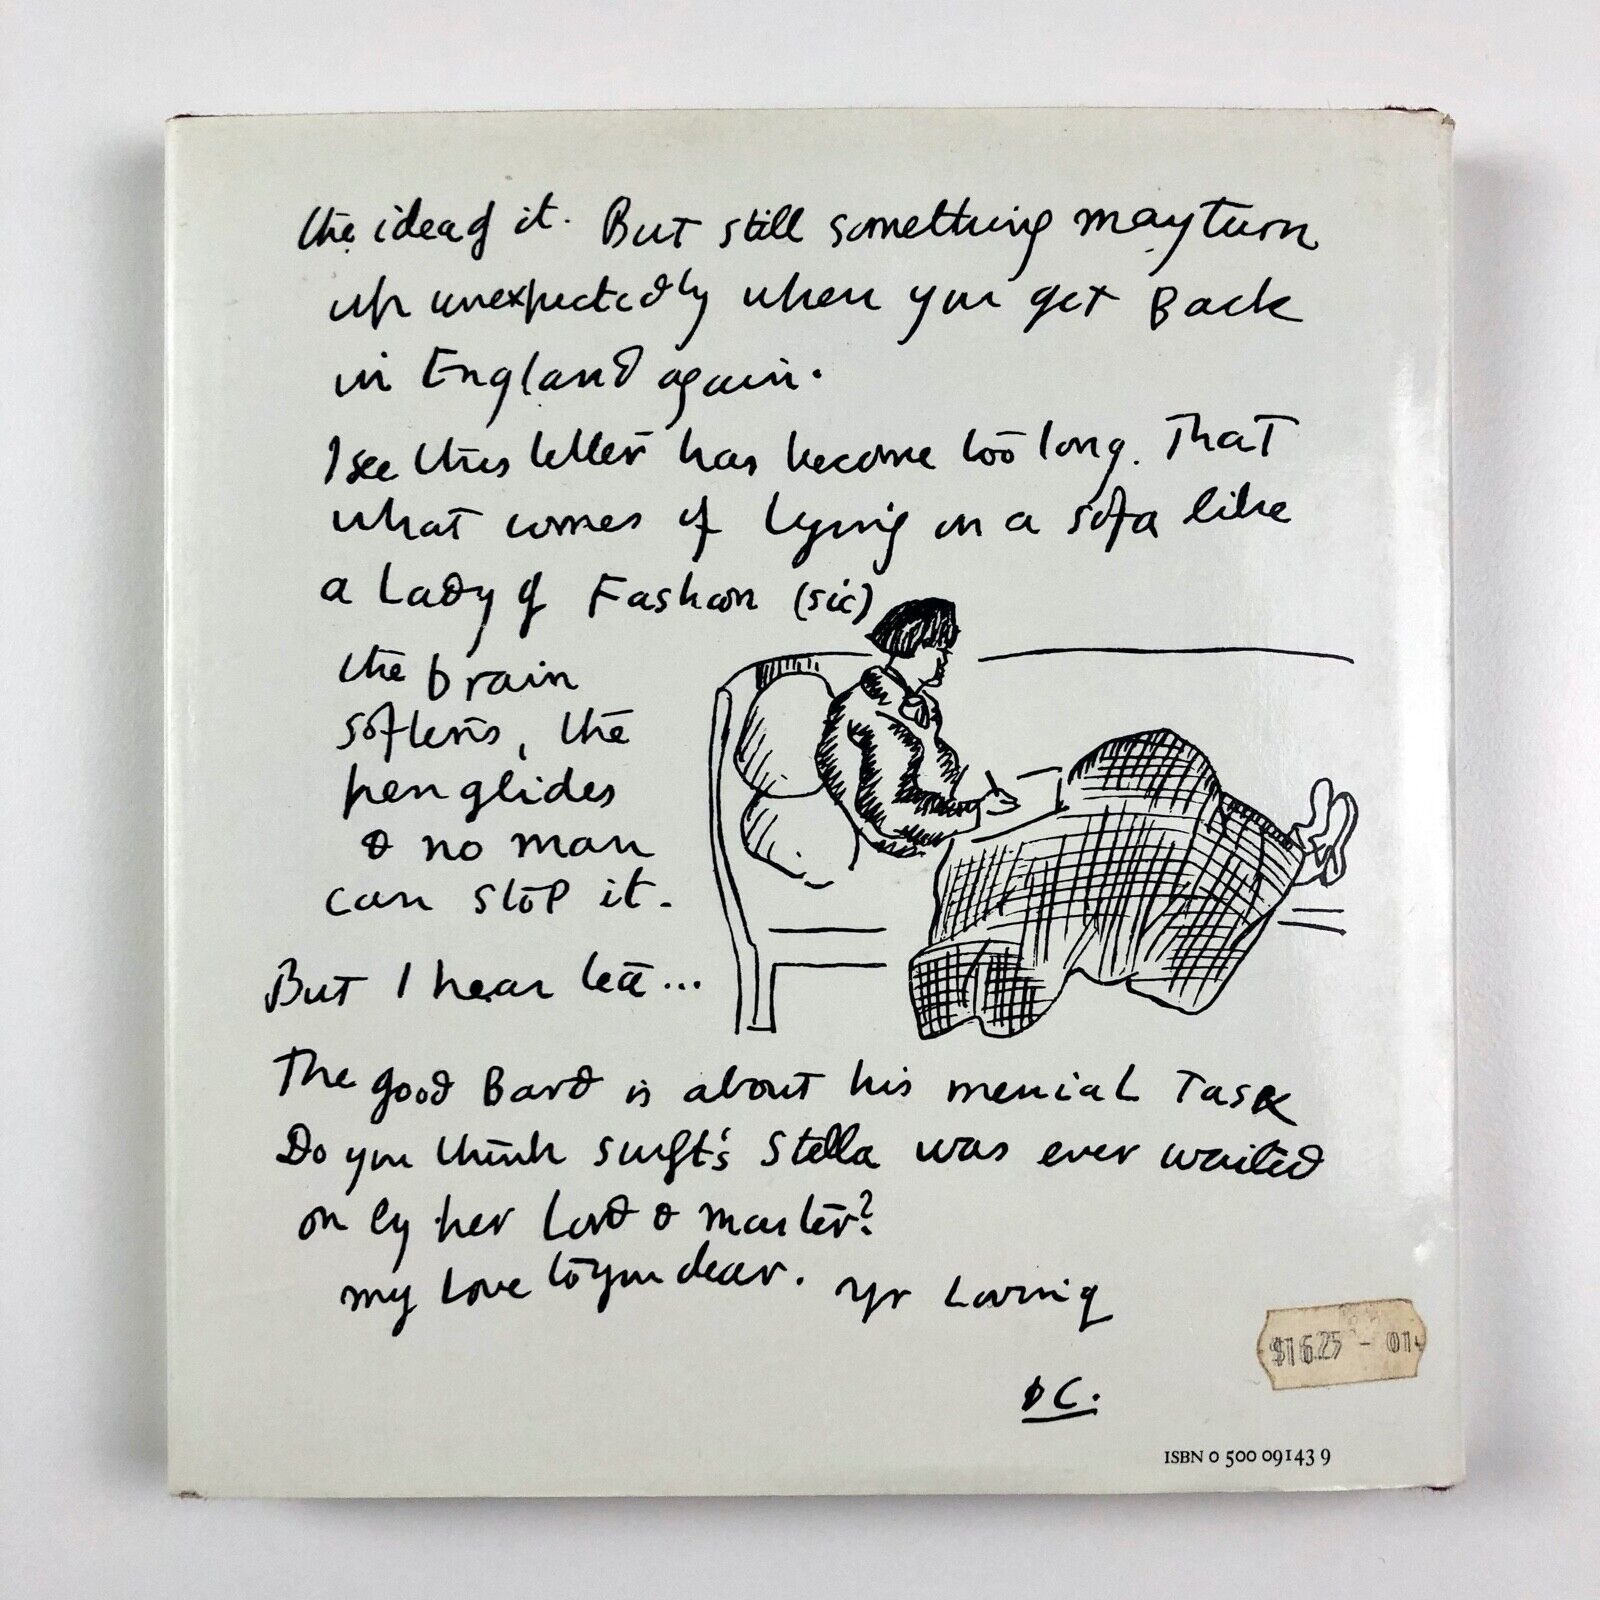 the idea of it. But still something may turn
up unexpectedly when you get Back
in England again.
I see this letter has become too long. That
what comes of lying on a sofa like
a Lady of Fashion (sic)
the brain
softens, the
pen glides
& no man
can stop it.
But I hear tea...
The good Bard is about his menial Task
Do you think Swift's Stella was ever waited
on by her Lord & Master?
my Love to you dear. Yr Loving
DC.
$16.25 - 01
ISBN 0 500 09143 9